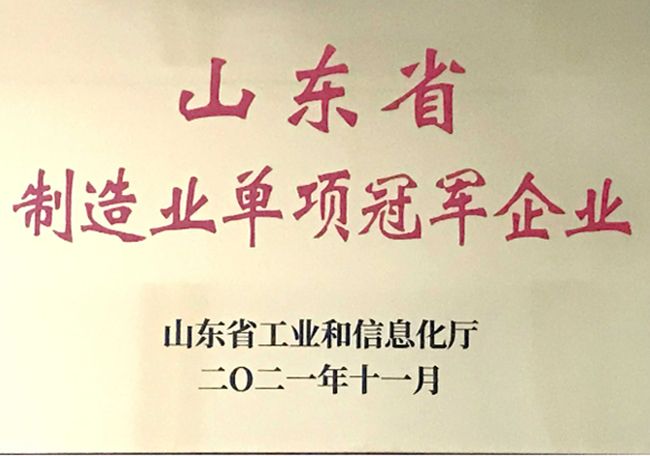 山东省
制造业单项冠军企业
山东省工业和信息化厅
二〇二一年十一月